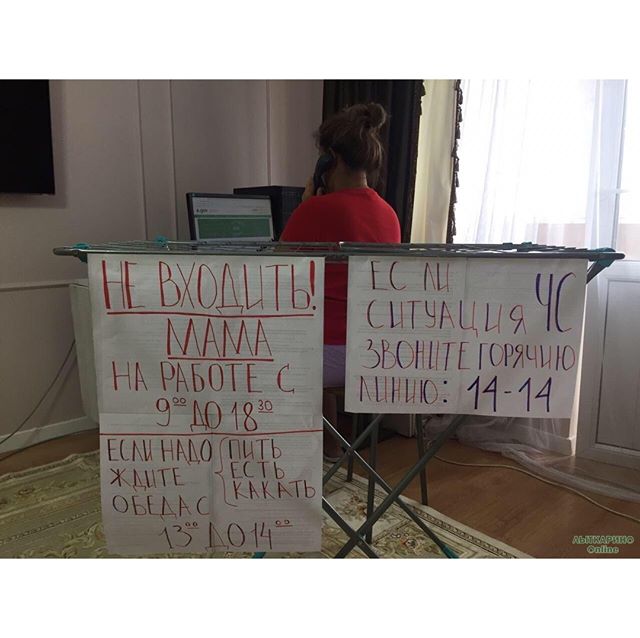 НЕ ВХОДИТЬ!
МАМА
НА РАБОТЕ С
9⁰⁰ ДО 18³⁰
ЕСЛИ НАДО
ЖДИТЕ
ОБЕДА С
ПИТЬ
ЕСТЬ
КАКАТЬ
13⁰⁰ ДО 14⁰⁰
ЕСЛИ
СИТУАЦИЯ ЧС
ЗВОНИТЕ ГОРЯЧУЮ
ЛИНИЮ: 14-14
ЛЫТКАРИНО
Online